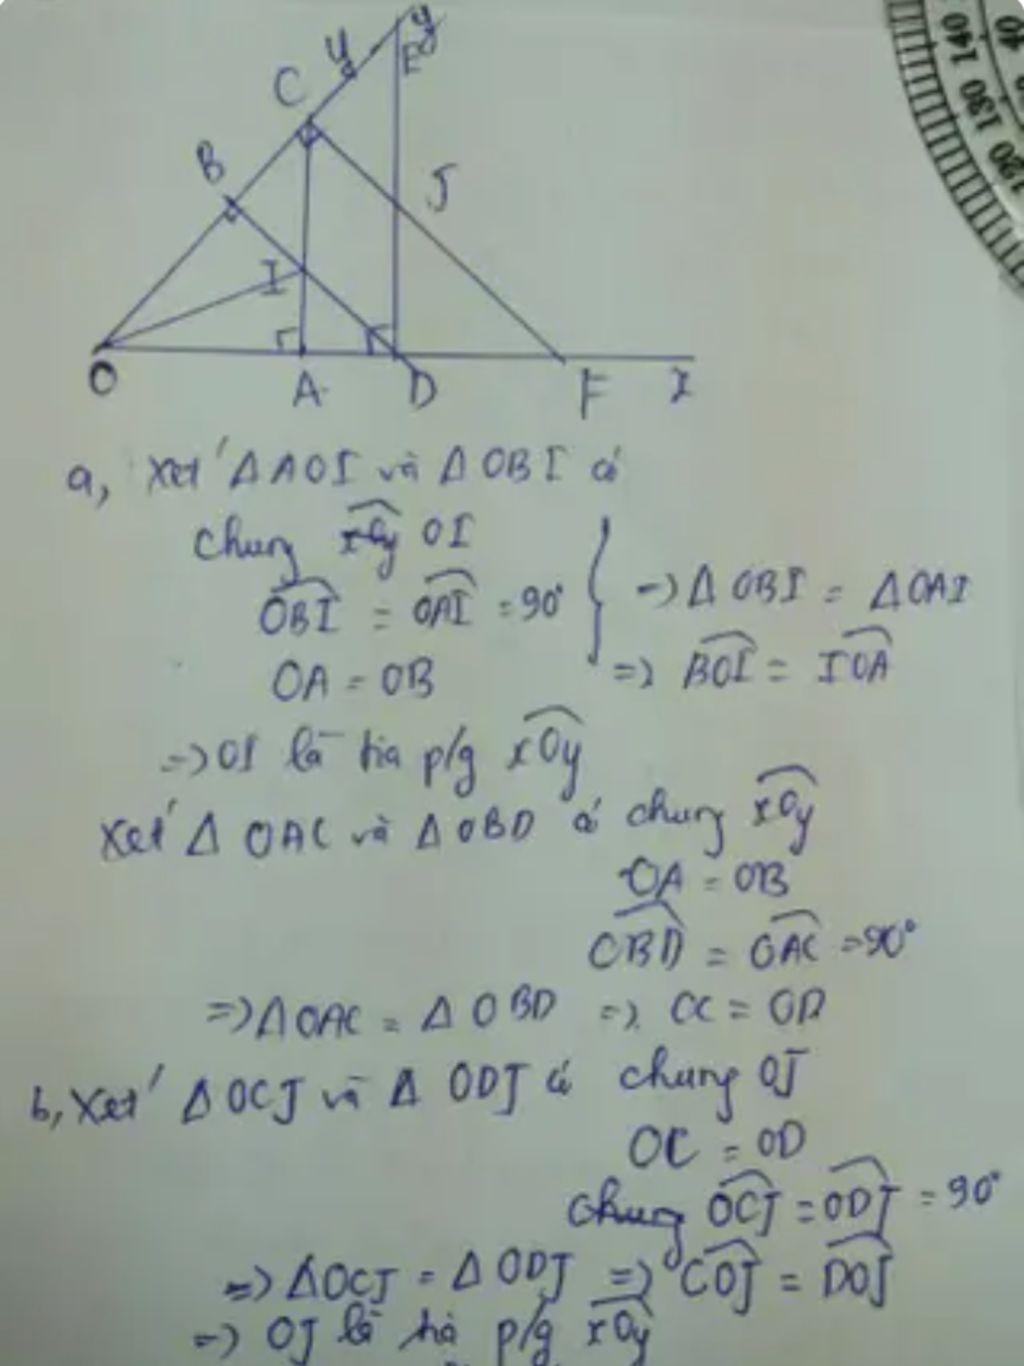 y
y
E
C
B
J
I
O
A
D
F
x
40
140
130
120
a, Xét ΔAOI và ΔOBI có
chung xOy OI
OBI = OAI = 90° → ΔOBI = ΔOAI
OA = OB => BOI = IOA
=> OI là tia p/g xOy
Xét ΔOAC và ΔOBD có chung xOy
OA = OB
OBD = OAC = 90°
=> ΔOAC = ΔOBD => OC = OD
b, Xét ΔOCJ và ΔODJ có chung OJ
OC = OD
chung OCJ = ODJ = 90°
=> ΔOCJ = ΔODJ => COJ = DOJ
=> OJ là tia p/g xOy